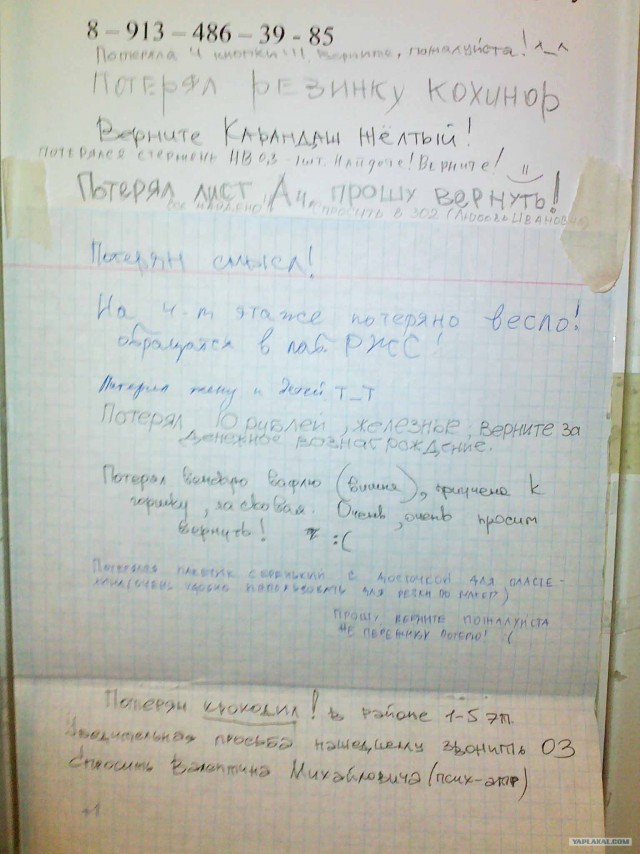 8 – 913 – 486 – 39 - 85
Потеряла 4 кнопки!!! Верните, пожалуйста! ^_^
Потерял резинку кохинор
Верните Карандаш жёлтый!
Потерялся стержень HB 0,3 - 1шт. Найдите! Верните!
Потерял лист А4, прошу вернуть!
просить в 302 (Любовь Ивановна)
Потерян смысл!
На 4-м этаже потеряно весло!
обращатся в лаб. РЖС!
Потерял жену и детей T_T
Потерял 10 рублей, железные, верните за
денежное вознаграждение.
Потерял вафлю (вишня), приучена к
горшку, ласковая. Очень, очень просим
вернуть! :(
Потерялся пакетик с доточкой для пласте-
лина (очень удобно использовать для резки по)
Прошу, верните пожалуйста
не переживу потерю! :(
Потерян крокодил! в районе 1-5 эт.
Убедительная просьба нашедшему звонить 03
спросить Валентина Михайловича (псих-атр)
+1
YAPLAKAL.COM